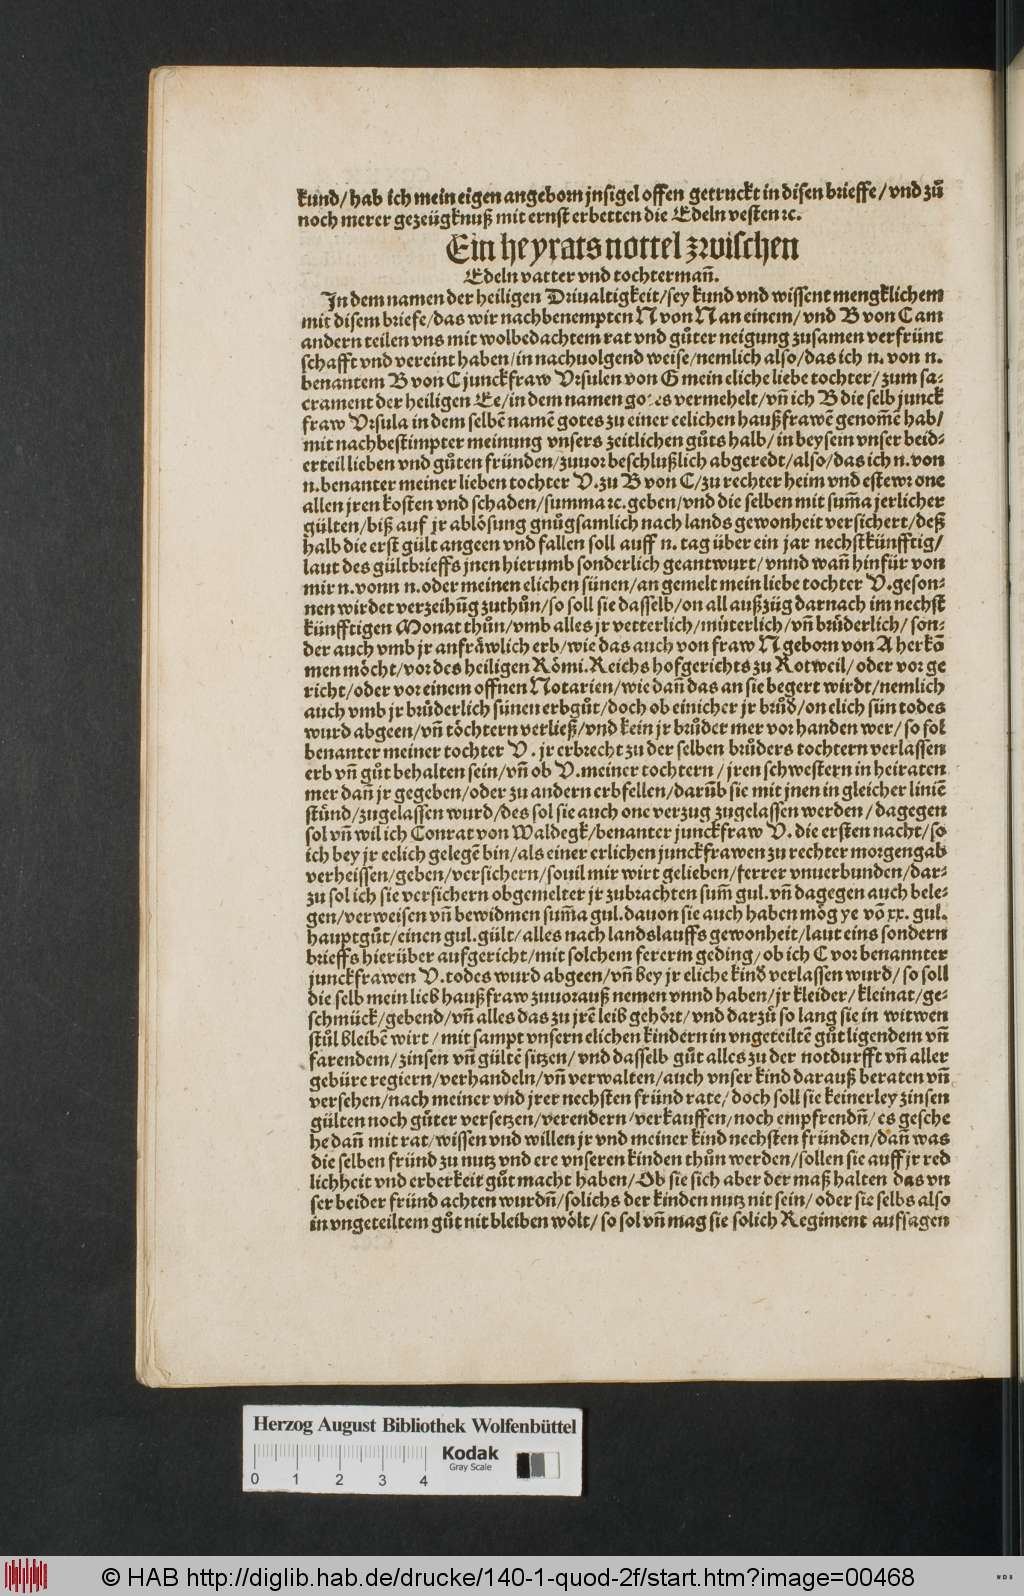 kund/hab ich mein eigen angeborn jnsigel offen getruckt in disen brieffe/vnd zuͦ
noch merer gezeügknuß mit ernst erbetten die Edeln vesten ꝛc.
Ein heyrats nottel zwischen
Edeln vatter vnd tochtermañ.
In dem namen der heiligen Driualtigkeit/sey kund vnd wissent mengklichem
mit disem briefe/das wir nachbenempten N von N an einem/vnd B von C am
andern teilen vns mit wolbedachtem rat vnd guͦter neigung zusamen verfrünt
schafft vnd vereint haben/in nachuolgend weise/nemlich also/das ich n. von n.
benantem B von C junckfraw Vrsulen von G mein eliche liebe tochter/zum sa⸗
crament der heiligen Ee/in dem namen gotes vermehelt/vñ ich B die selb junck
fraw Vrsula in dem selbẽ namẽ gotes zu einer eelichen haußfrawẽ genom̃e hab/
mit nachbestimpter meinung vnsers zeitlichen guͦts halb/in beysein vnser beid⸗
erteil lieben vnd guͦten fründen/zuuor beschlußlich abgeredt/also/das ich n. von
n. benanter meiner lieben tochter V. zu B von C/zu rechter heim vnd estewr one
allen jren kosten vnd schaden/summa ꝛc. geben/vnd die selben mit sum̃a jerlicher
gülten/biß auf jr ablösung gnuͦgsamlich nach lands gewonheit versichert/deß
halb die erst gült angeen vnd fallen soll auff n. tag über ein jar nechstkünfftig/
laut des gültbrieffs jnen hierumb sonderlich geantwurt/vnnd wañ hinfür von
mir n. vonn n. oder meinen elichen sünen/an gemelt mein liebe tochter V. geson⸗
nen wirdet verzeihũg zuthuͦn/so soll sie dasselb/on all außzüg darnach im nechst
künfftigen Monat thuͦn/vmb alles jr vetterlich/müterlich/vñ bruͦderlich/son⸗
der auch vmb jr anfraͤwlich erb/wie das auch von fraw N geborn von A herkõ
men möcht/vor des heiligen Römi. Reichs hofgerichts zu Rotweil/oder vor ge
richt/oder vor einem offnen Notarien/wie dañ das an sie begert wirdt/nemlich
auch vmb jr bruͦderlich sünen erbguͦt/doch ob einicher jr bruͦd/on elich sün todes
wurd abgeen/vñ töchtern verließ/vnd kein jr bruͦder mer vor handen wer/so sol
benanter meiner tochter V. jr erbrecht zu der selben bruͦders tochtern verlassen
erb vñ guͦt behalten sein/vñ ob V. meiner tochtern/jren schwestern in heiraten
mer dañ jr gegeben/oder zu andern erbfellen/darũb sie mit jnen in gleicher liniẽ
stünd/zugelassen wurd/des sol sie auch one verzug zugelassen werden/dagegen
sol vñ wil ich Conrat von Waldegk/benanter junckfraw V. die ersten nacht/so
ich bey jr eelich gelegẽ bin/als einer erlichen junckfrawen zu rechter morgengab
verheissen/geben/versichern/souil mir wirt gelieben/ferrer vnuerbunden/dar⸗
zu sol ich sie versichern obgemelter jr zubrachten sum̃ gul. vñ dagegen auch bele⸗
gen/verweisen vñ bewidmen sum̃a gul. dauon sie auch haben mög ye võ xx. gul.
hauptguͦt/einen gul. gült/alles nach landslauffs gewonheit/laut eins sondern
brieffs hierüber aufgericht/mit solchem fererm geding/ob ich C vor benannter
junckfrawen V. todes wurd abgeen/vñ bey jr eliche kind verlassen wurd/so soll
die selb mein lieb haußfraw zuuorauß nemen vnnd haben/jr kleider/kleinat/ge⸗
schmück/gebend/vñ alles das zu jrẽ leib gehört/vnd darzuͦ so lang sie in witwen
stuͦl bleibẽ wirt/mit sampt vnsern elichen kindern in vngeteiltẽ guͦt ligendem vñ
farendem/zinsen vñ gültẽ sitzen/vnd dasselb guͦt alles zu der notdurfft vñ aller
gebüre regiern/verhandeln/vñ verwalten/auch vnser kind darauß beraten vñ
versehen/nach meiner vnd jrer nechsten fründ rate/doch soll sie keinerley zinsen
gülten noch guͦter versetzen/verendern/verkauffen/noch empfrendñ/es gesche
he dañ mit rat/wissen vnd willen jr vnd meiner kind nechsten fründen/dañ was
die selben fründ zu nutz vnd ere vnseren kinden thuͦn werden/sollen sie auff jr red
lichheit vnd erberkeit guͦt macht haben/Ob sie sich aber der maß halten das vn
ser beider fründ achten wurdñ/solichs der kinden nutz nit sein/oder sie selbs also
in vngeteiltem guͦt nit bleiben wölt/so sol vñ mag sie solich Regiment aufsagen
Herzog August Bibliothek Wolfenbüttel
Kodak
Gray Scale
0 1 2 3 4
© HAB http://diglib.hab.de/drucke/140-1-quod-2f/start.htm?image=00468